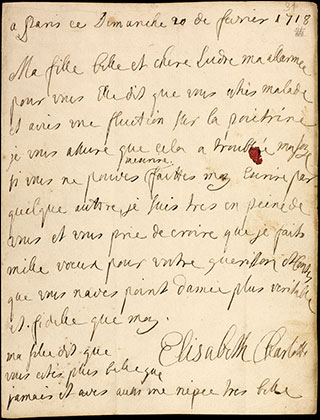 a Paris ce Dimanche 20 de fevrier 1718
Ma fille belle et chere Ludre ma alarmee
pour vous Elle dit que vous esties malade
et avies une fluction sur la poitrine
je vous assure que cela a trouble ma joy
si vous ne pouves m'escrire faittes moy Escrire par
quelque auttre, je suis tres en peine de
vous et vous prie de croire que je faits
mille voeux pour vottre guerisson et
que vous naves point d'amee plus veritable
et fidelle que moy.
Elisabeth Charlotte
ma fille dit que
vous esties plus belle que
jamais et aves une niepce tres belle